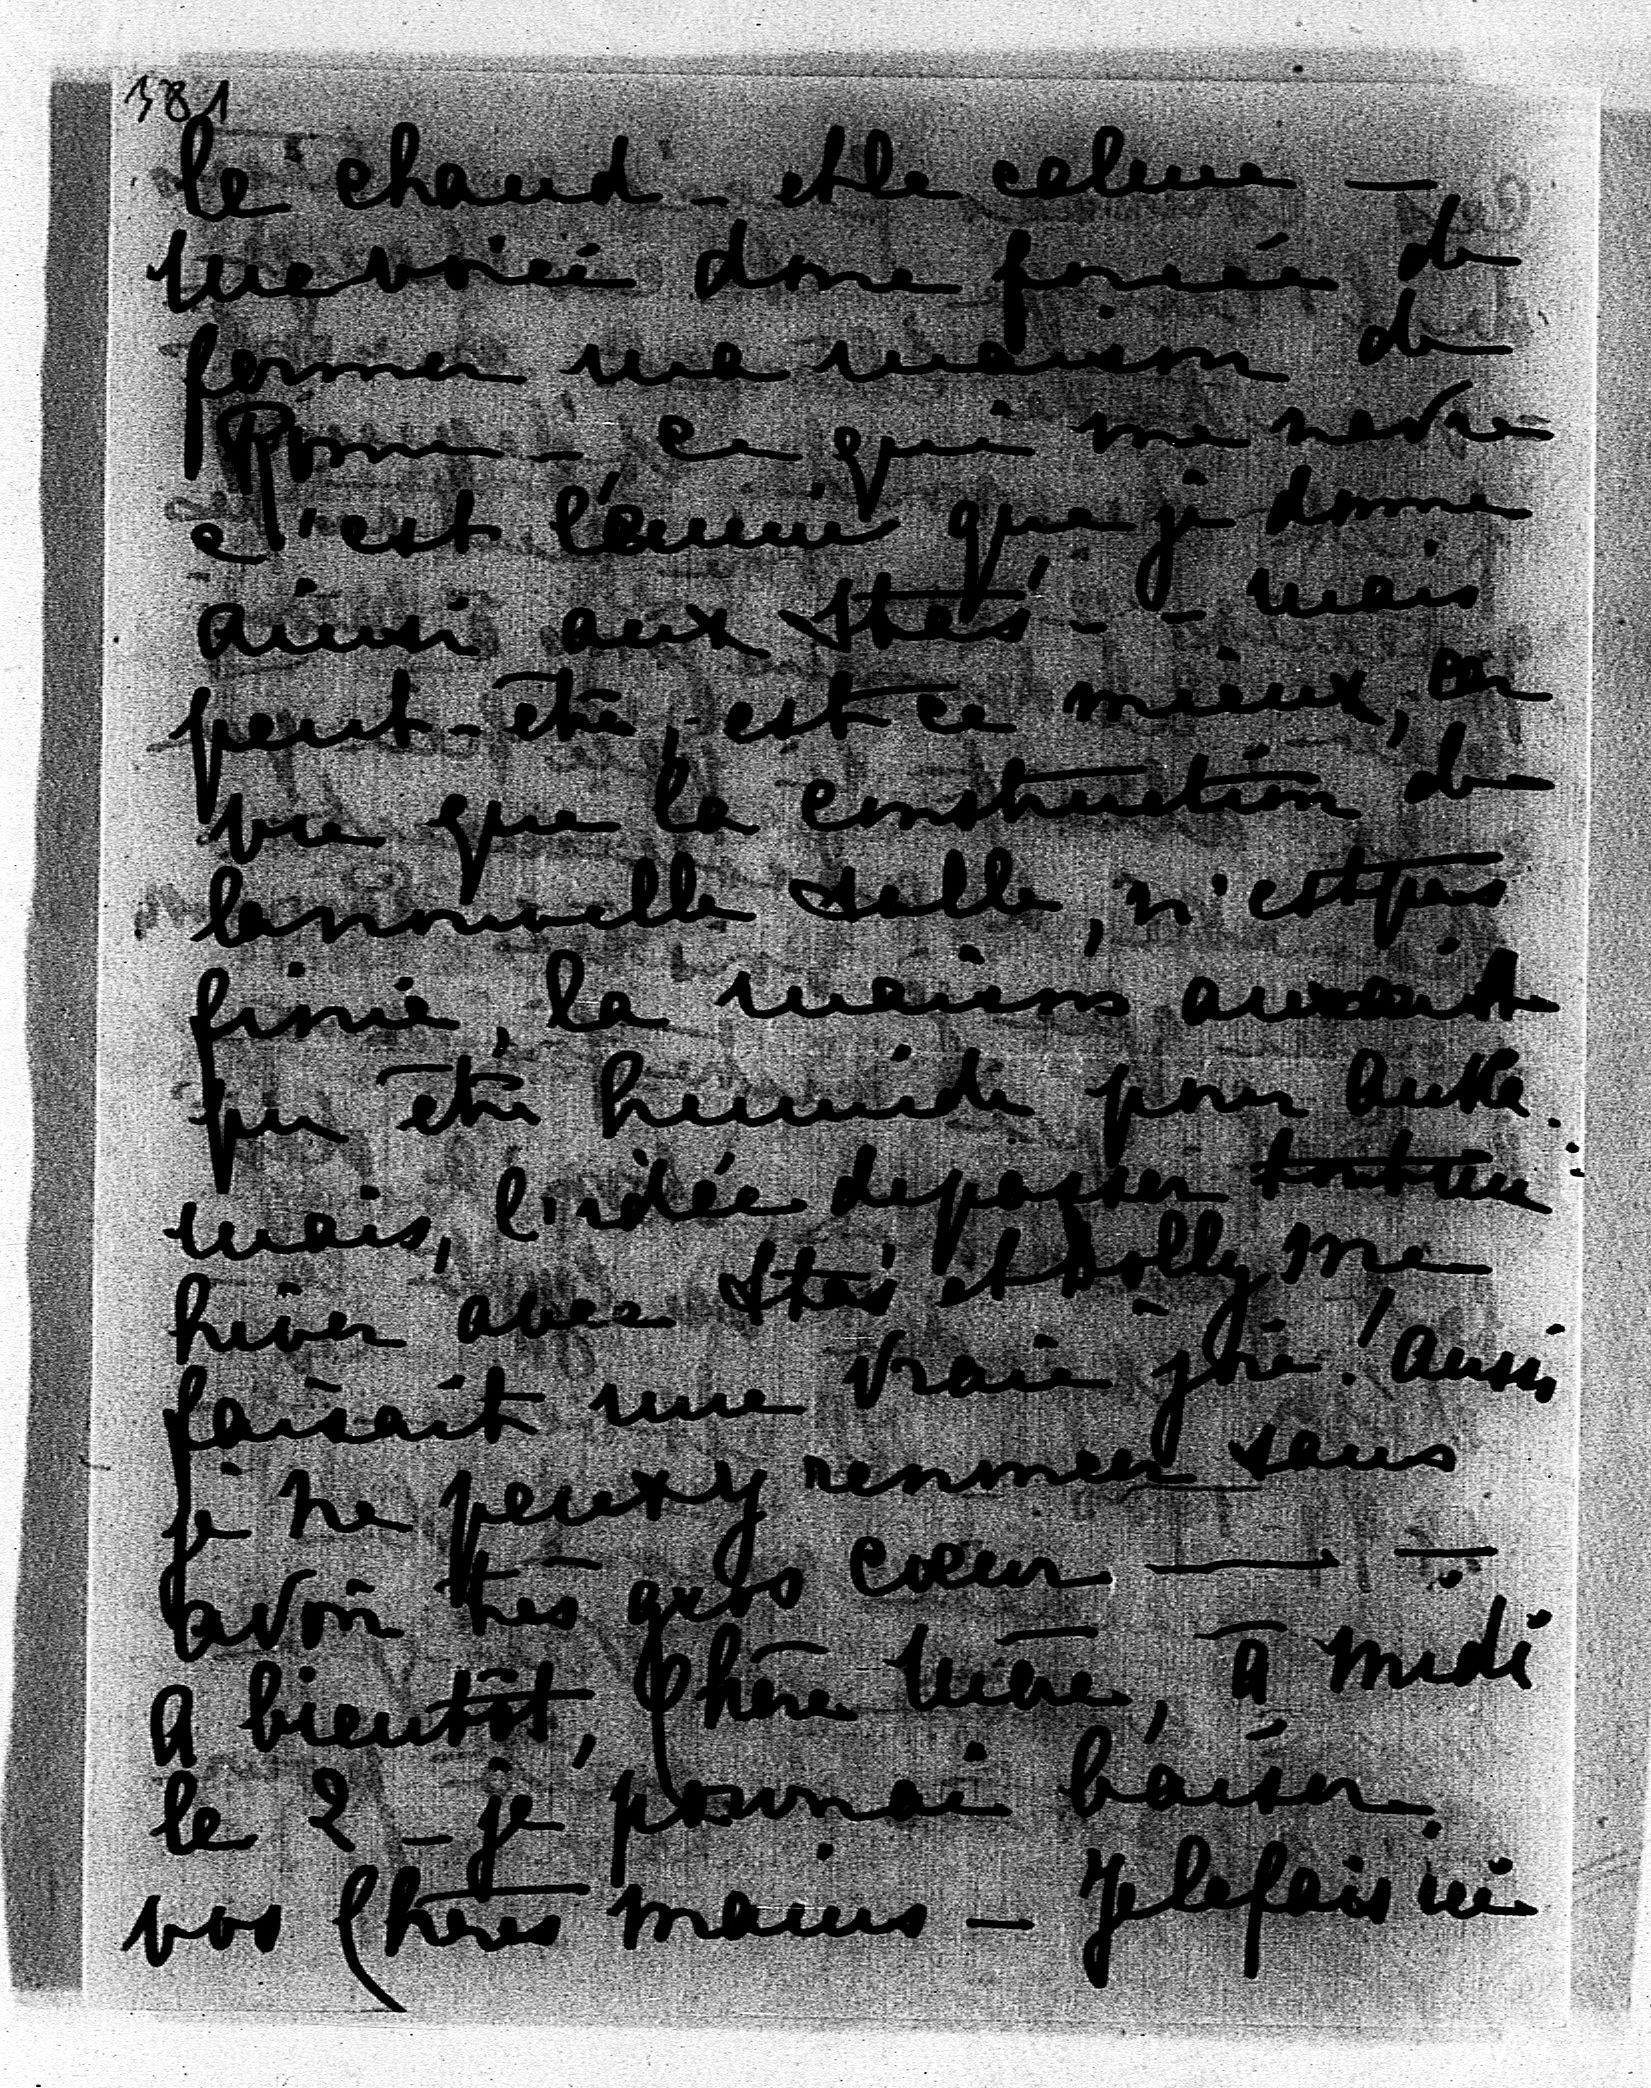 381
le chaud - et le calme —
me voici donc forcée de
fermer ma maison de
Rome -, ce qui me navre
c'est l'ennui que je donne
ainsi aux Stas - - mais
peut-être, est ce mieux, car
vu que la construction de
la nouvelle salle, n'est pas
finie, la maison aurait
pu être humide pour
mais, l'idée de passer tout un
hiver avec Stas et Dolly me
faisait une vraie joie ! aussi
je ne peux y renoncer sans
avoir très gros coeur — —
A bientôt, Chère Mère, à midi
le 2 - je pourrai baiser
vos Chères mains - Je le fais ici